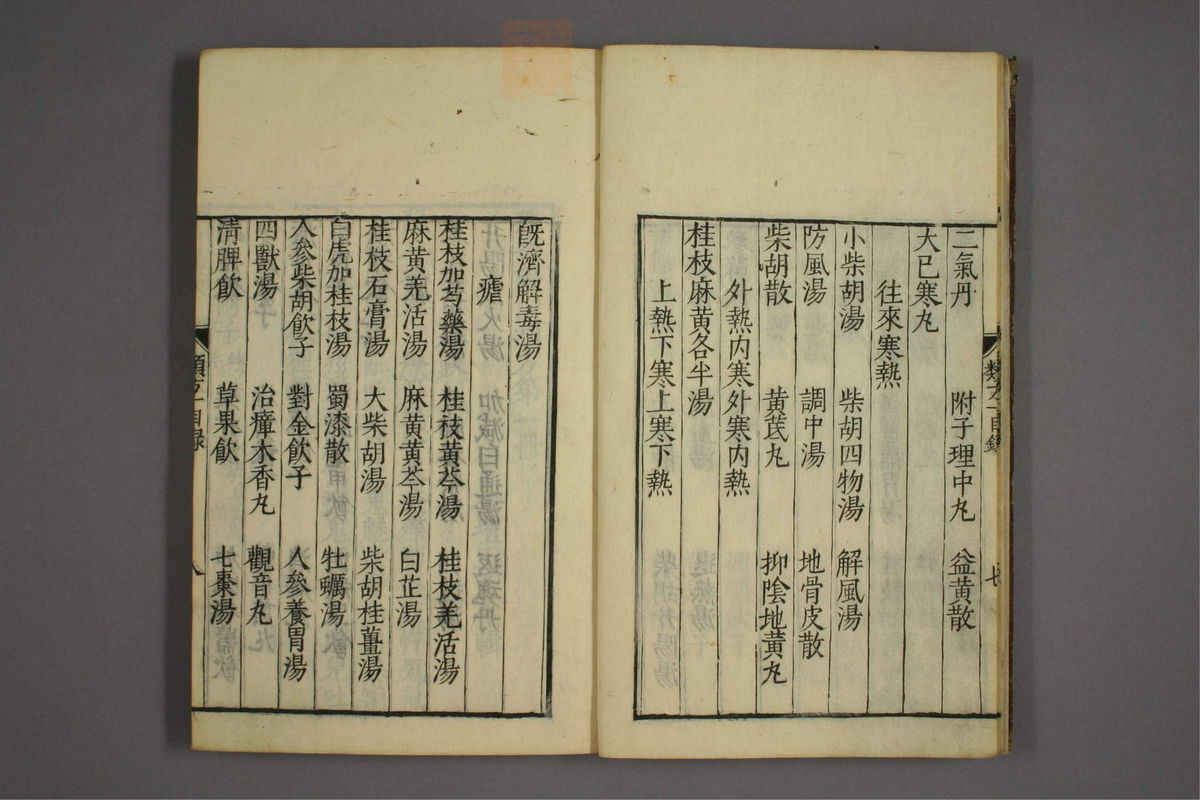 二氣丹 附子理中丸 益黃散
大已寒丸
往來寒熱
小柴胡湯 柴胡四物湯 解風湯
防風湯 調中湯 地骨皮散
柴胡散 黃芪丸 抑陰地黃丸
外熱内寒外寒内熱
桂枝麻黃各半湯
上熱下寒上寒下熱
旣濟解毒湯
瘧
桂枝加芍藥湯 桂枝黃芩湯 桂枝羌活湯
麻黃羌活湯 麻黃黃芩湯 白芷湯
桂枝石膏湯 大柴胡湯 柴胡桂薑湯
白虎加桂枝湯 蜀漆散 牡蠣湯
人參柴胡飲子 對金飲子 人參養胃湯
四獸湯 治瘴木香丸 觀音丸
清脾飲 草果飲 七棗湯
類方一目録 八